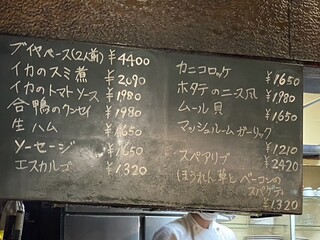 ブイヤベース(2人前) ¥4400
イカのスミ煮 ¥2090
イカのトマトソース ¥1980
合鴨のクンセイ ¥1980
生ハム ¥1650
ソーセージ ¥1650
エスカルゴ ¥1320
カニコロッケ ¥1650
ホタテのニース風 ¥1980
ムール貝 ¥1650
マッシュルームガーリック ¥1210
スペアリブ ¥2420
ほうれん草とベーコンの
スパゲティ ¥1320